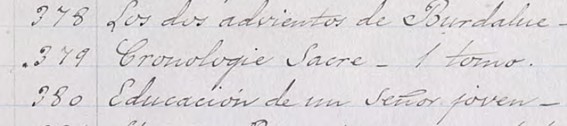 378 Los dos advientos de Burdalue -
.379 Cronologie Sacre - 1 tomo.
380 Educación de un Señor joven -